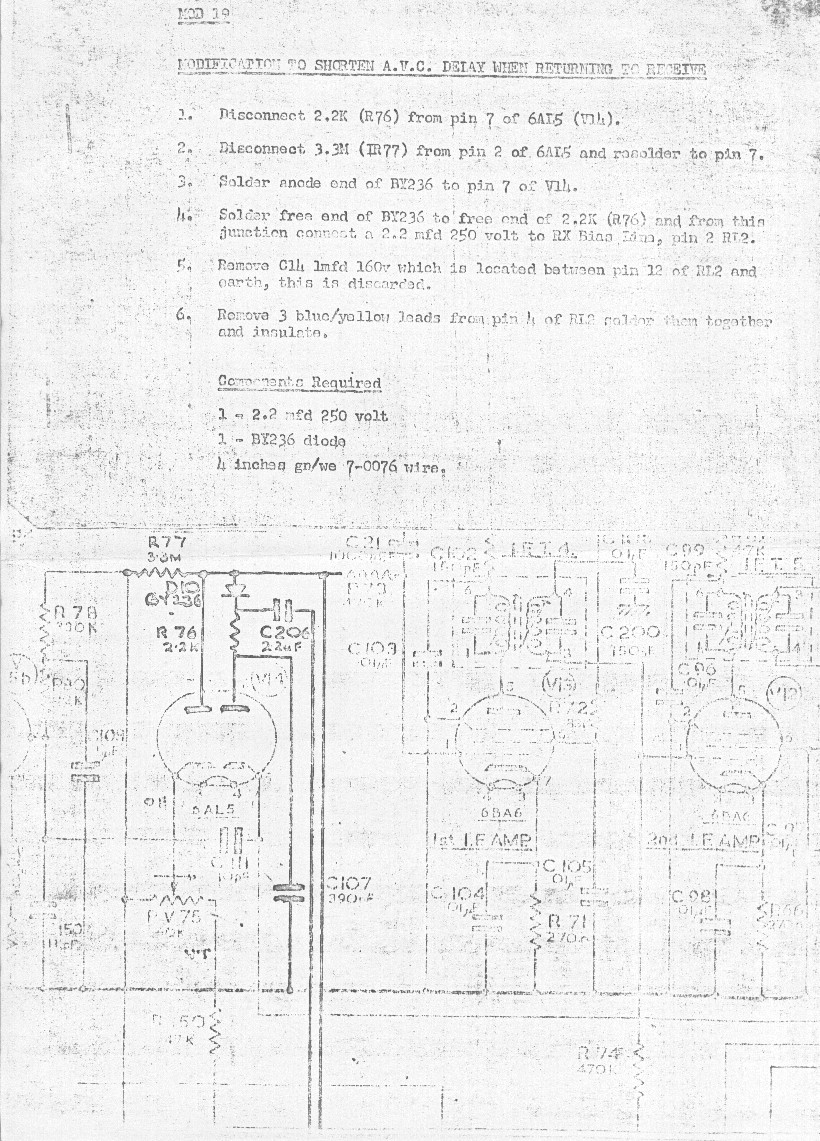 MOD 19
MODIFICATION TO SHORTEN A.V.C. DELAY WHEN RETURNING TO RECEIVE
1. Disconnect 2.2K (R76) from pin 7 of 6AL5 (V14).
2. Disconnect 3.3M (R77) from pin 2 of 6AL5 and resolder to pin 7.
3. Solder anode end of BY236 to pin 7 of V14.
4. Solder free end of BY236 to free end of 2.2K (R76) and from this
junction connect a 2.2 mfd 250 volt to RX Bias Line, pin 2 RL2.
5. Remove C14 1mfd 160v which is located between pin 12 of RL2 and
earth, this is discarded.
6. Remove 3 blue/yellow leads from pin 4 of RL2 solder them together
and insulate.
Components Required
1 - 2.2 mfd 250 volt
1 - BY236 diode
4 inches gn/we 7-0076 wire.
R77
3·3M
D10
BY236
R76
2·2K
C206
2·2uF
V14
R78
C109
6AL5
C107
390
RV75
C21
C102
I.F.T.4.
C103
C200
150pF
V13
R72
2
5
6BA6
1st I.F. AMP.
C104
·01µF
C105
·01µ
R71
270
C99
150pF
I.F.T.
C96
·01µF
V12
2
5
6BA6
2nd I.F. AMP
C98
·01µF
R74
470K